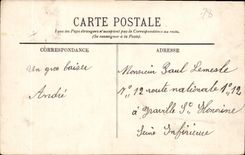 CARTE POSTALE
Tous les Pays étrangers n'acceptent pas la Correspondance au recto.
(Se renseigner à la poste)
CORRESPONDANCE
ADRESSE
Un gros baiser
André
Monsieur Paul Lemesle
N° 12 route nationale N° 12
à Graville Ste Honorine
Seine Inférieure